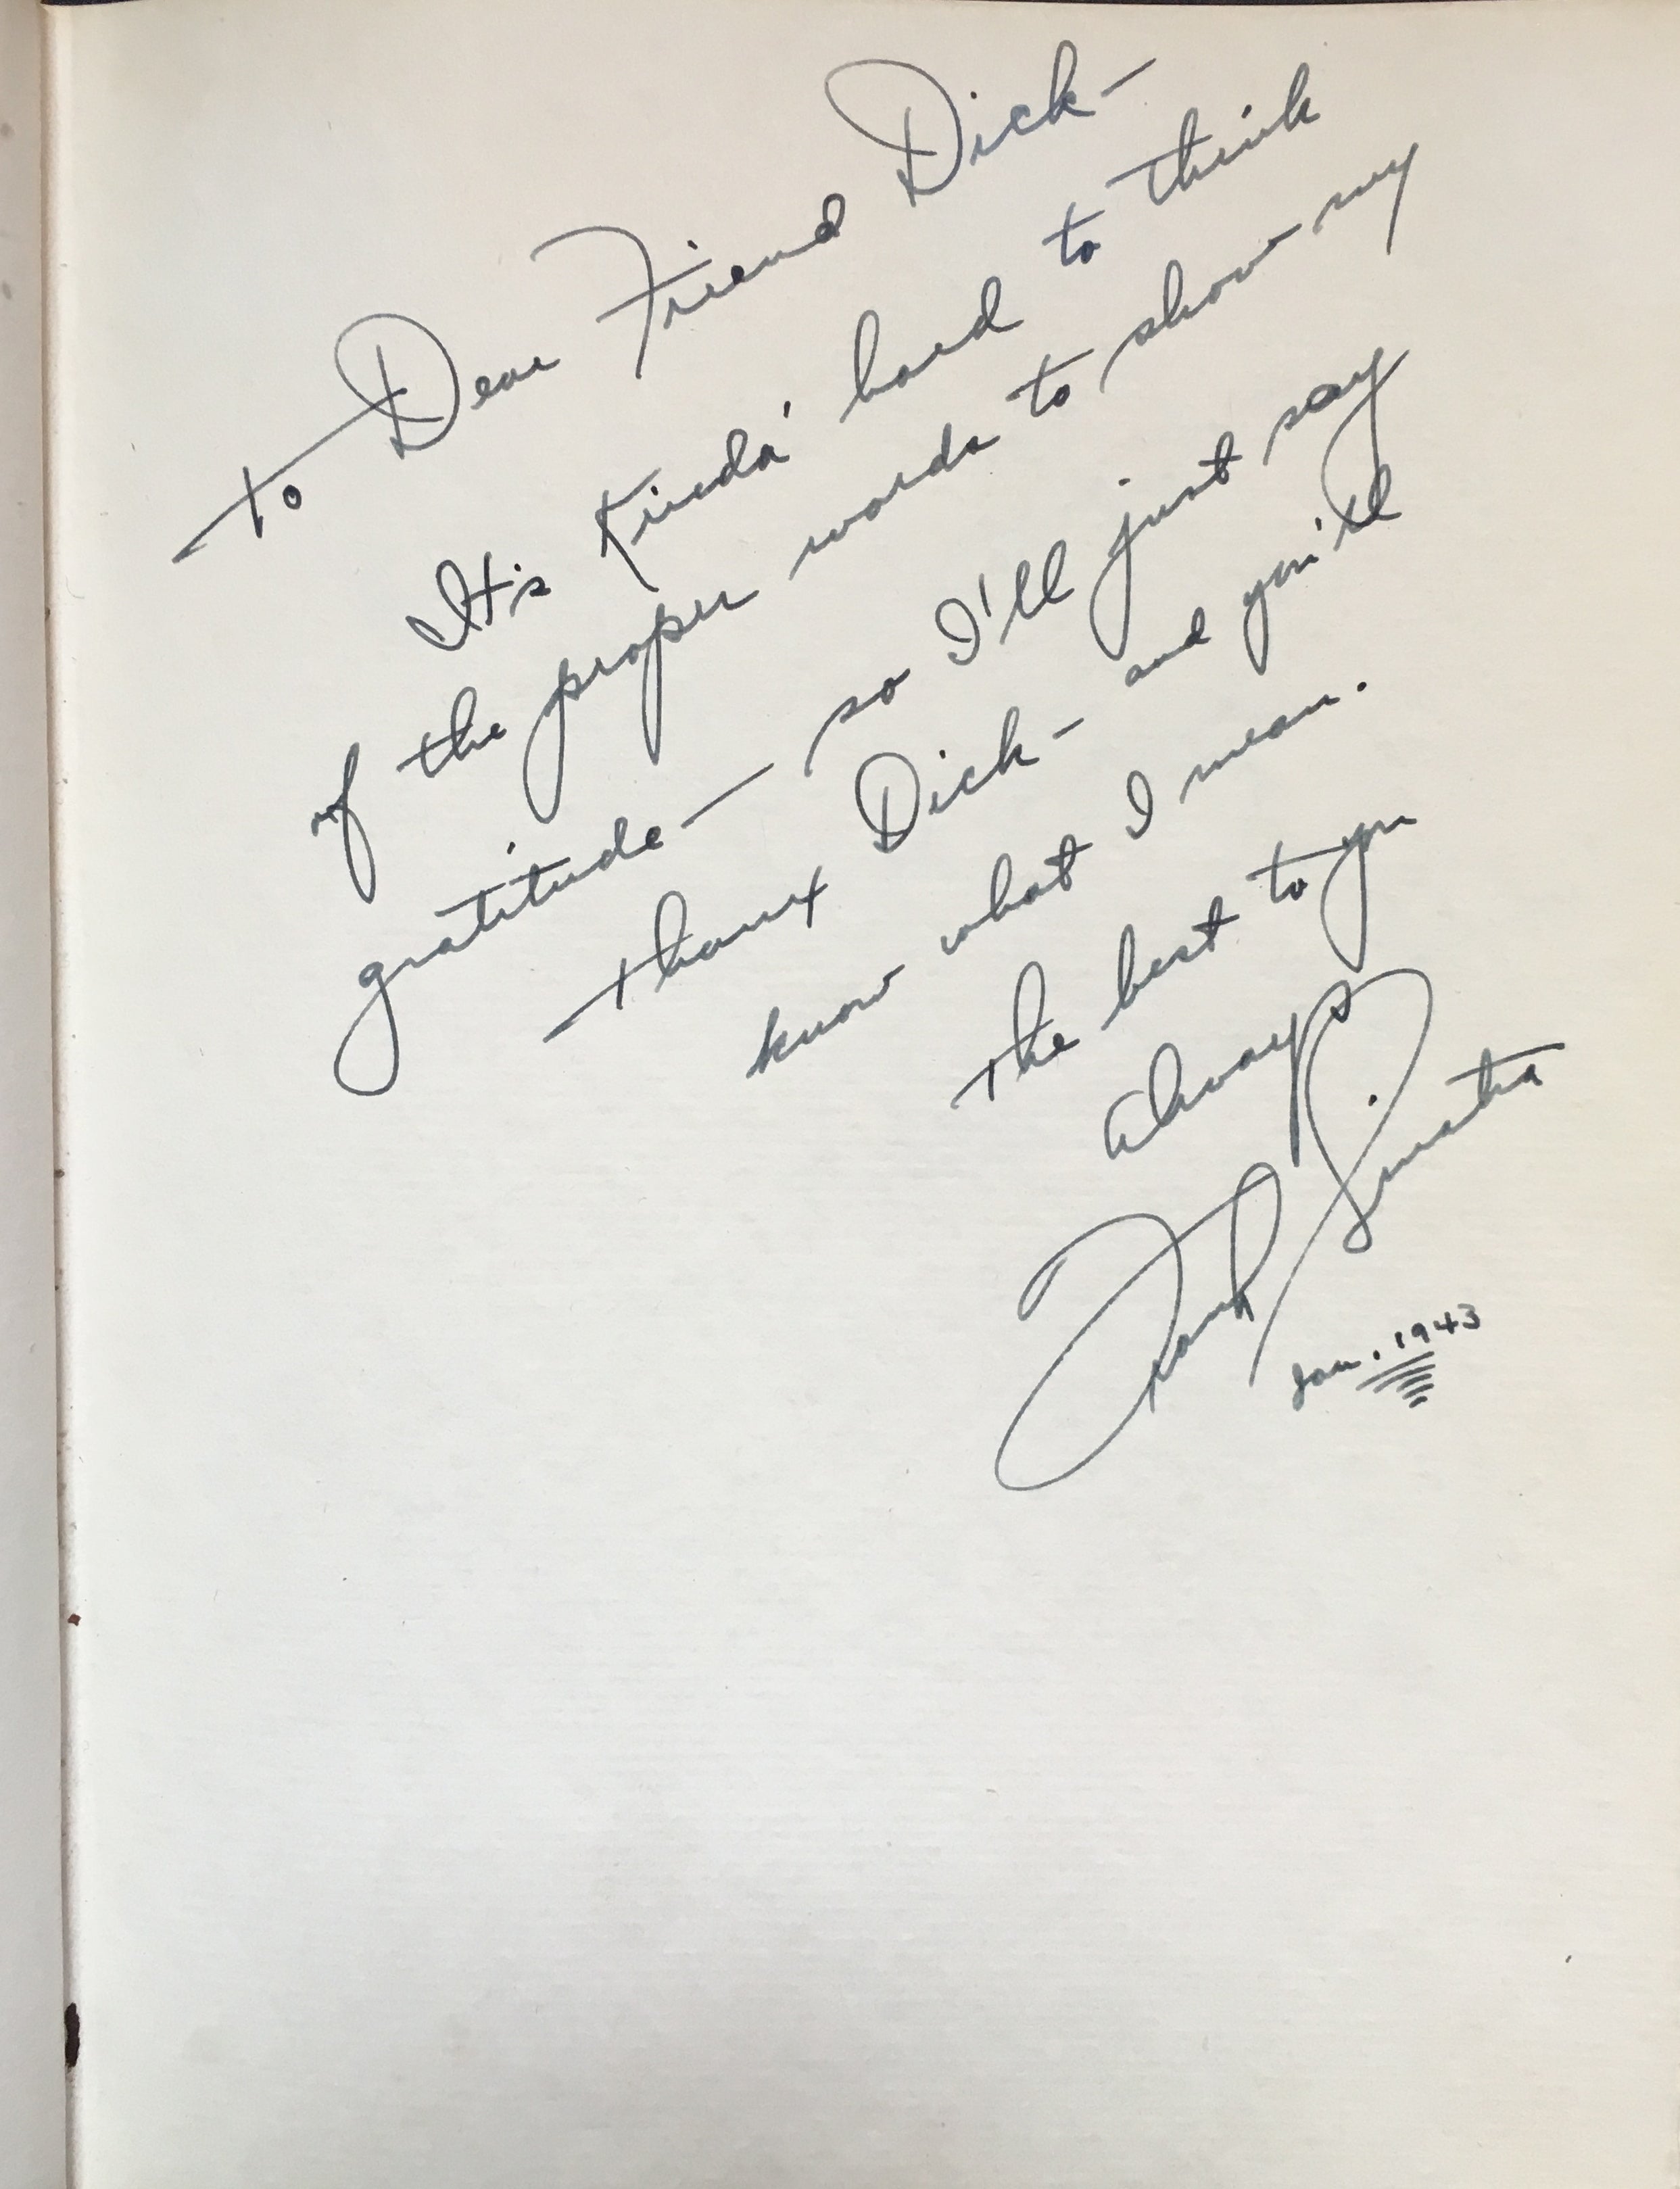 To Dear Friend Dick-
It's Kinda' hard to think
of the proper words to show my
gratitude - so I'll just say
thanx Dick - and you'll
know what I mean.
The best to you
always
Frank Sinatra
Jan. 1943